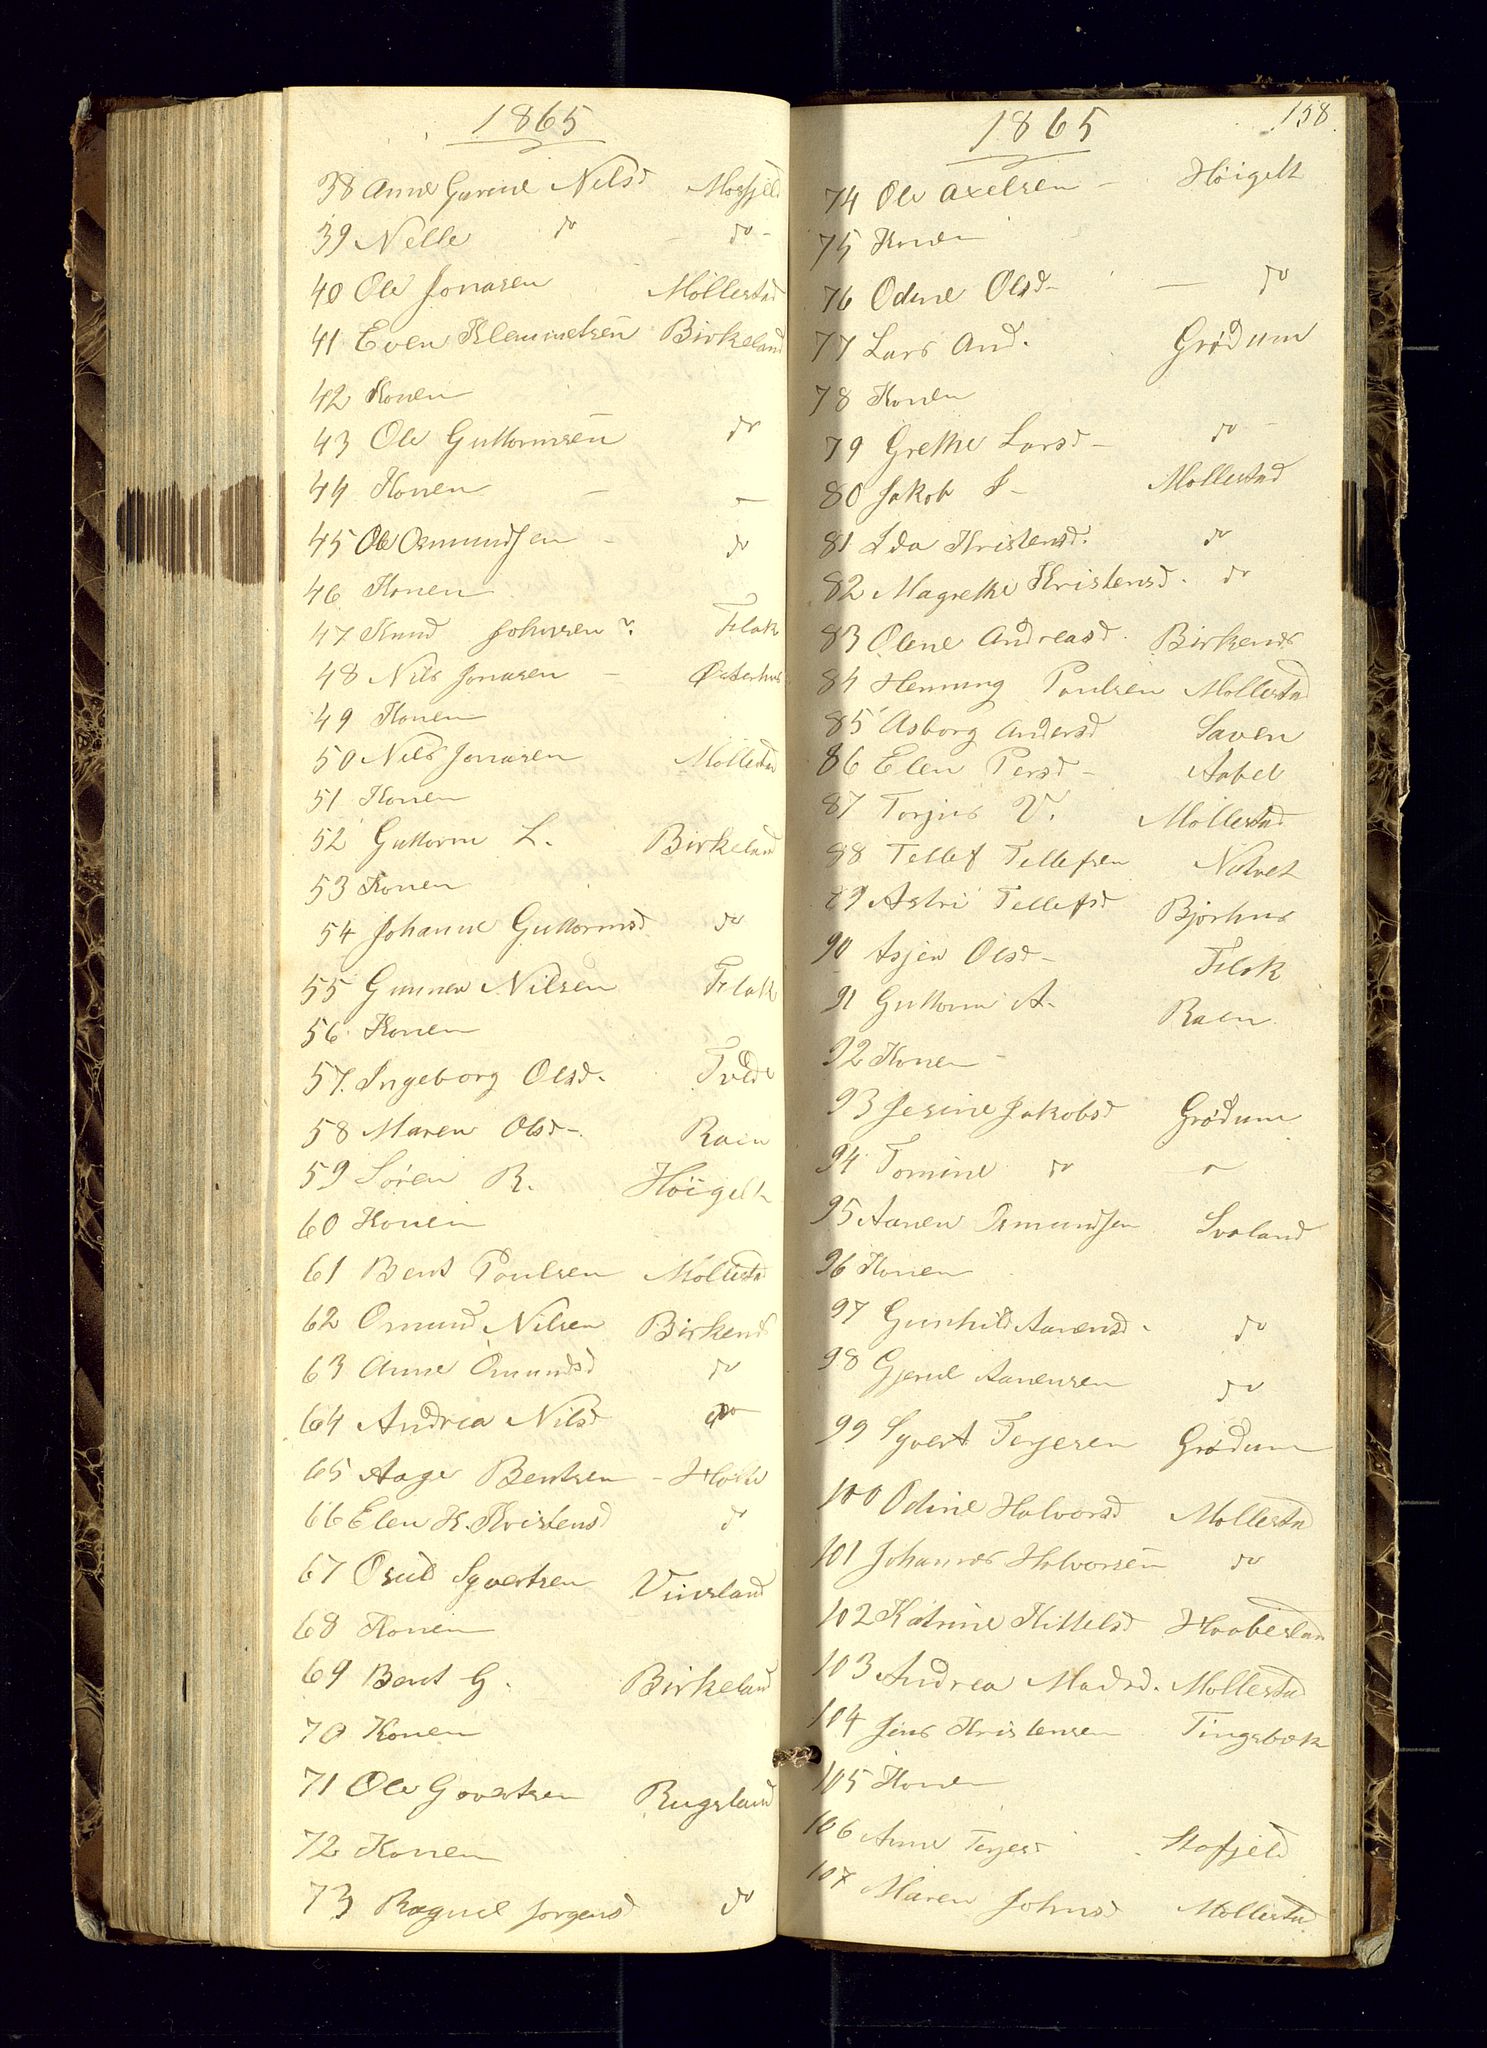 1865
38 Anne Gurine Nilsd Mosfjeld
39 Nelle do - do -
40 Ole Jonasen Møllestad
41 Even Klemmetsen Birkeland
42 Konen
43 Ole Guttormsen do
44 Konen - -
45 Ole Osmundsen - do
46 Konen
47 Knud Johnsen Flak
48 Nils Jonasen - Østerhus
49 Konen
50 Nils Jonasen Møllestad
51 Konen
52 Guttorm L. Birkeland
53 Konen
54 Johanne Guttormsd do
55 Gunner Nilsen Flak
56 Konen
57. Ingeborg Olsd. Tvede
58 Maren Olsd-. Raen
59 Søren R. Høigelt
60 Konen
61 Bent Poulsen Møllestad
62 Osmund Nilsen Birkenes
63 Anne Osmundsd do
64 Andrea Nilsd do
65 Aage Bentsen - Holte
66 Elen K. Kristensd d
67 Osuld Syvertsen Vinsland
68 Konen
69 Bent G. Birkeland
70 Konen
71 Ole Govertsen Rugsland
72 Konen
73 Ragnil Jørgensd do
158.
1865
74 Ole Axelsen - Høigelt
75 Konen
76 Odine Olsd- - do
77 Lars And. Grødum
78 Konen
79 Grethe Larsd- do -
80 Jakob I- Møllestad
81 Ida Kristensd. do
82 Magrethe Kristensd. do
83 Olene Andreasd. Birkenes
84 Henning Poulsen Møllestad
85 Asborg Andersd Saven
86 Elen Persd- Aabel
87 Torjus V. Møllestad
88 Tellef Tellefsen Natvet
89 Astri Tellefsd Bjorhus
90 Asjer Olsd- Flak
91 Guttorm A- Raen
92 Konen -
93 Jesine Jakobsd Grødum
94 Tomine do -
95 Aanen Osmundsen Svaland
96 Konen
97 Gunhild Aanensd- do
98 Gjerul Aanensen do
99 Syvert Terjesen Grødum
100 Odine Halvorsd Møllestad
101 Johannes Halvorsen do
102 Katrine Kittelsd Haabestad
103 Andrea Madsd. Møllestad
104 Jens Kristensen Tingsbek
105 Konen
106 Anne Terjesd Stofjeld
107 Maren Johnsd Møllestad